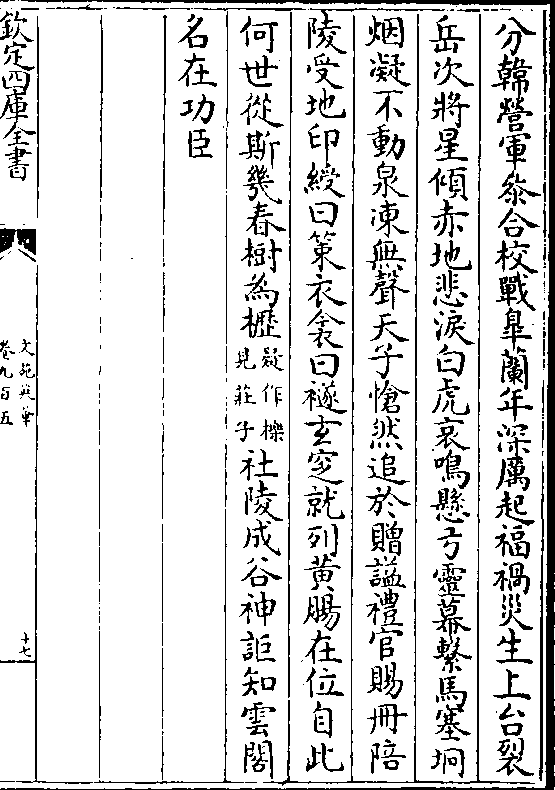 分韓營軍叅合校戰臯蘭年深厲起福禍災生上台裂
岳次將星傾赤地悲淚白虎哀鳴懸弓靈幕繫馬塞坰
烟凝不動泉凍無聲天子愴然追於贈諡禮官賜冊陪
陵受地印綬曰策衣衾曰襚玄窆就列黄腸在位自此
何世從斯幾春樹為櫪疑作櫟見莊子社陵成谷神詎知雲閣
名在功臣
欽定四庫全書
文苑英華
卷九百五
十七